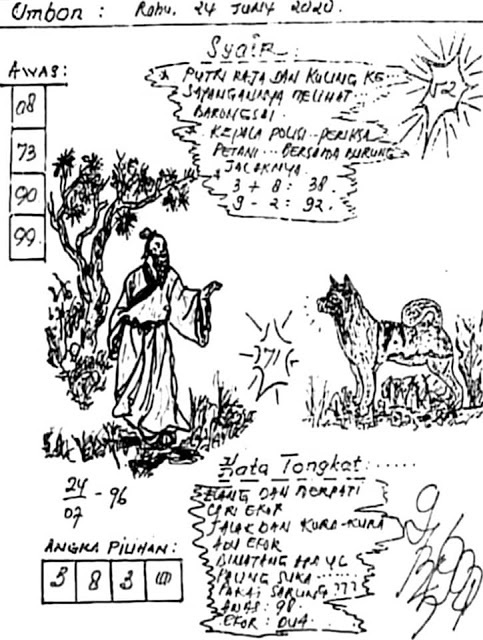 Ombon : Rabu, 24 Juny 2020.
Syair :
AWAS :
08
73
90
99
* PUTRI RAJA DAN KUCING KE..
SAYANGANNYA MELIHAT...
BARONGSAI.
* KEPALA POLISI.. PERIKSA
PETANI... BERSAMA BURUNG
JALAKNYA.
3 + 8 : 38.
9 - 2 : 92.
1-2
71
24/07 - 96
Mata Tongkat : ......
ELANG DAN MERPATI
CARI EKOR
JALAK DAN KURA-KURA
ADU EKOR
BINATANG APA YG
PALING SUKA ......
PAKAI SARUNG ???
AWAS : 90.
EKOR : DUA.
ANGKA PILIHAN :
3 8 3